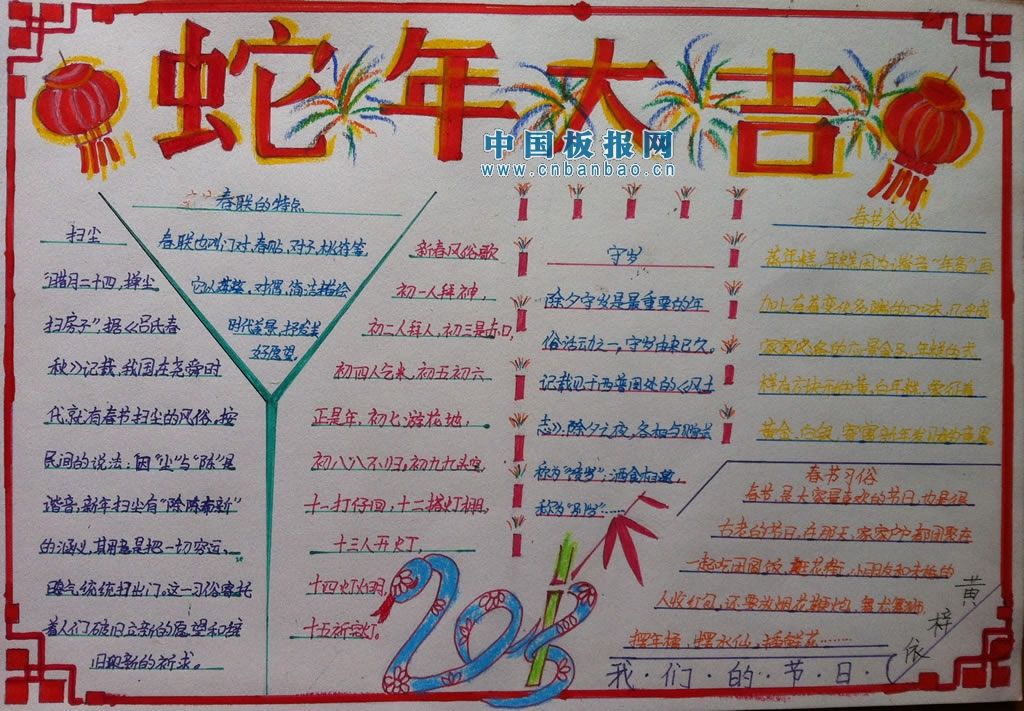 蛇年大吉
中国板报网
www.cnbanbao.cn
扫尘
"腊月二十四,掸尘
扫房子",据《吕氏春
秋》记载,我国在尧舜时
代就有春节扫尘的风俗。按
民间的说法:因"尘"与"陈"是
谐音,新年扫尘有"除陈布新"
的涵义,其用意是把一切穷运、
晦气统统扫出门。这一习俗寄托
着人们破旧立新的愿望和辞
旧迎新的祈求。
春联的特点
春联也叫门对、春贴、对子、桃符等,
它以工整、对偶、简洁描绘
时代背景,抒发美
好愿望。
新春风俗歌
初一人拜神,
初二人拜人,初三是赤口,
初四人乞米,初五初六
正是年,初七游花地,
初八八不归。初九九头空,
十一打仔回,十二搭灯棚,
十三人开灯,
十四灯火明,
十五祈完灯。
守岁
除夕守岁是最重要的年
俗活动之一,守岁由来已久。
记载见于西晋周处的《风土
志》:除夕之夜,各相与赠送,
称为"馈岁";酒食相邀,
称为"别岁"……
春节食俗
蒸年糕,年糕因为谐音"年高",再
加上有着变化多端的口味,几乎成
家家必备的应景食品。年糕的式
样有方块形的黄、白年糕,象征着
黄金、白银,寄寓新年发财的意思
春节习俗
春节,是大家最喜欢的节日,也是很
古老的节日,在那天,家家户户都团聚在
一起吃团圆饭、逛花街,小朋友和未婚的
人收红包,还要放烟花鞭炮、舞龙舞狮、
摆年桔、摆水仙、插鲜花……
2013
我·们·的·节·日·
黄梓依